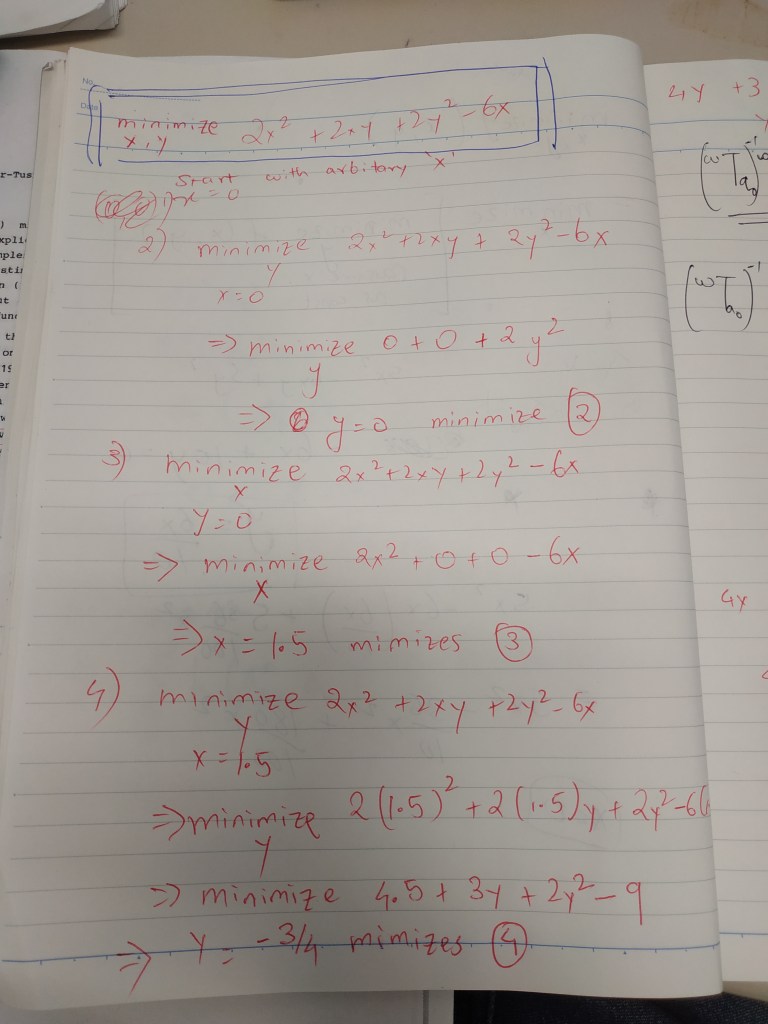 No.
Date
minimize 2x² + 2xy + 2y² - 6x
x, y
Start with arbitary 'x'
1) x = 0
2) minimize 2x² + 2xy + 2y² - 6x
y
x = 0
=> minimize 0 + 0 + 2y²
y
=> y = 0 minimize ②
3) minimize 2x² + 2xy + 2y² - 6x
x
y = 0
=> minimize 2x² + 0 + 0 - 6x
x
=> x = 1.5 mimizes ③
4) minimize 2x² + 2xy + 2y² - 6x
y
x = 1.5
=> minimize 2(1.5)² + 2(1.5)y + 2y² - 6(
y
=> minimize 4.5 + 3y + 2y² - 9
=> y = -3/4 mimizes ④
r-Tus
4y + 3
4x